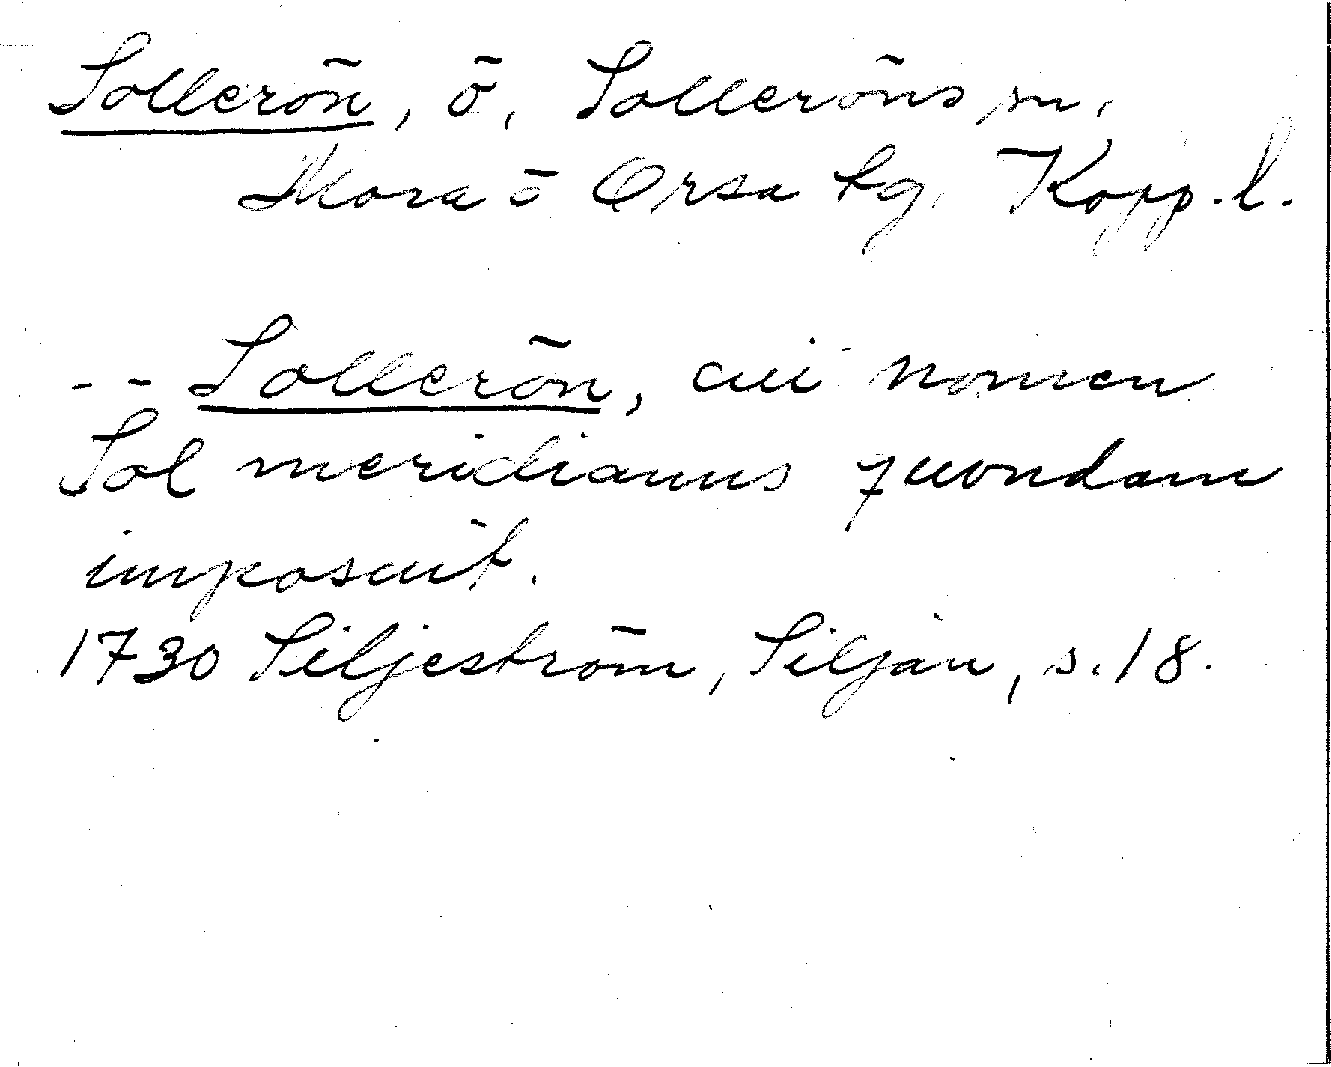 Sollerön, ö, Solleröns sn,
Mora o Orsa tg, Kopp. l.
-- Sollerön, cui nomen
Sol meridianus quondam
imposuit.
1730 Siljeström, Siljan, s. 18.